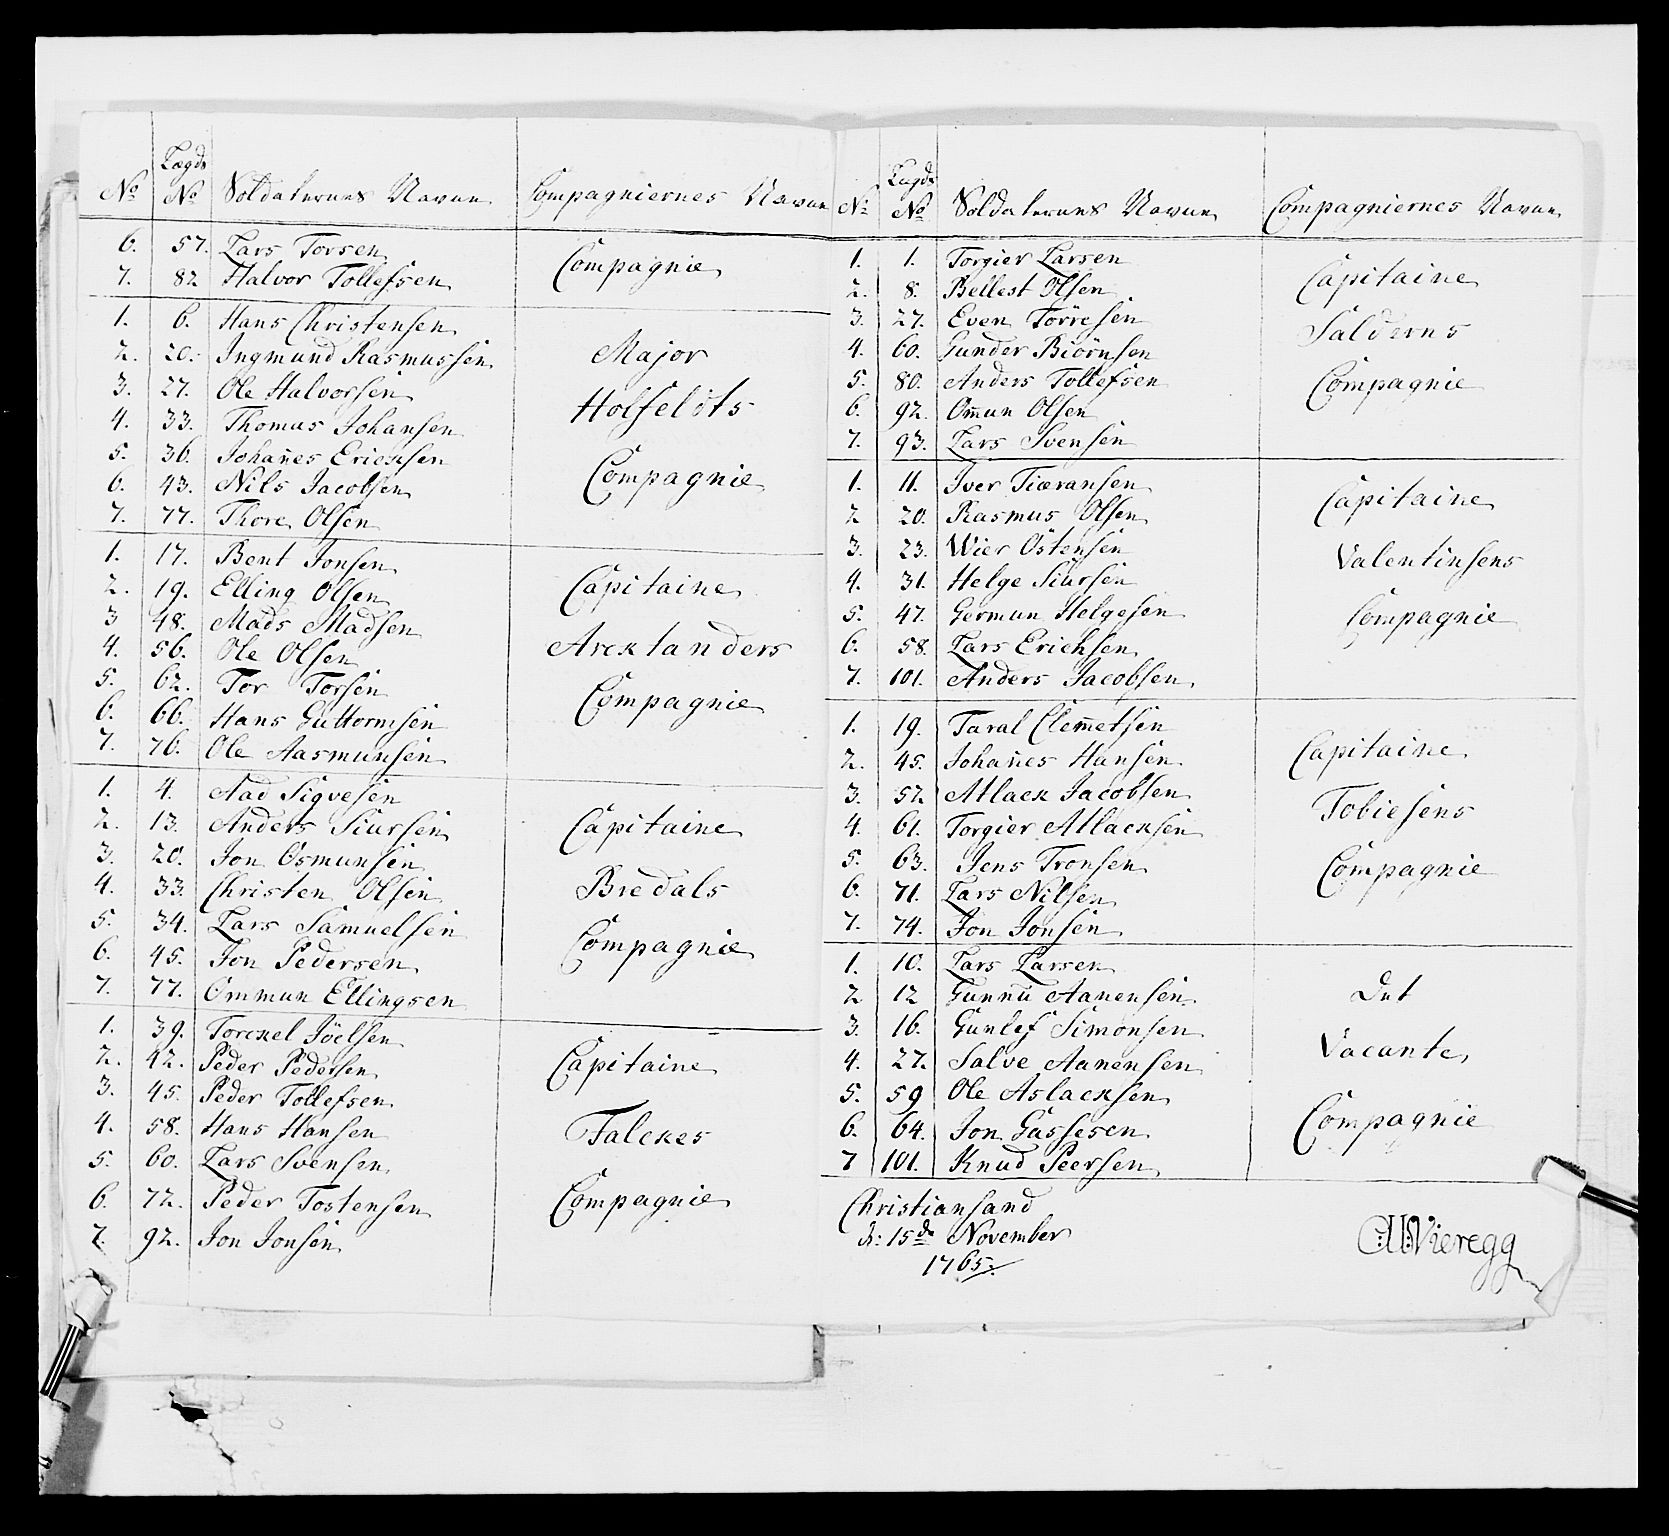 Lægds
No No Soldaternes Navne Compagniernes Navne
6. 57. Lars Torsen
7. 82 Halvor Tollefsen Compagnie
1. 6. Hans Christensen
2. 20. Ingmund Rasmussen Major
3. 27. Ole Halvorsen
4. 33. Thomas Johansen Holfeldts
5. 36. Johañes Ericksen
6. 43. Nils Jacobsen Compagnie
7. 77. Thore Olsen
1. 17. Bent Jonsen
2. 19. Elling Olsen Capitaine
3 48. Mads Madsen
4. 56. Ole Olsen Arcktanders
5. 62. Tor Torsen
6. 66. Hans Guttormsen Compagnie
7. 76. Ole Aasmunsen
1. 4. Aad Sigvesen
2. 13. Anders Siursen Capitaine
3. 20. Jon Osmunsen
4. 33. Christen Olsen Bredals
5. 34. Lars Samuelsen
6. 45. Jon Pedersen Compagnie
7. 77. Ommun Ellingsen
1. 39. Torckel Jöelsen
2. 42. Peder Pedersen Capitaine
3. 45. Peder Tollefsen
4. 58. Hans Hansen Falckes
5. 60. Lars Svensen
6. 72. Peder Tostensen Compagnie
7. 92. Jon Jonsen
Lægds
No No Soldaternes Navne Compagniernes Navne
1. 1. Torgier Larsen
2. 8. Bellest Olsen Capitaine
3. 27. Even Törresen
4. 60. Gunder Biörnsen Salderns
5. 80. Anders Tollefsen Compagnie
6. 92. Om̃un Olsen
7. 93. Lars Svensen
1. 11. Iver Tiæransen
2 20. Rasmus Olsen Capitaine
3. 23. Wier Östensen
4. 31. Helge Siursen Valentinsens
5. 47. Germun Helgesen
6. 58. Lars Erichsen Compagnie
7. 101. Anders Jacobsen
1. 19. Taral Clem̃etsen
2. 45. Johañes Hansen Capitaine
3. 52. Atlack Jacobsen
4. 61. Torgier Atlacksen Tobiesens
5. 63. Jens Tronsen
6. 71. Lars Nilsen Compagnie
7. 74. Jon Jonsen
1. 10. Lars Larsen
2 12 Gunnu Aanensen Det
3. 16. Gunlef Simonsen
4. 27. Salve Aanensen Vacante
5. 59 Ole Aslacksen
6. 64. Jon Gassesen Compagnie
7 101. Knud Peersen
Christiansand
d: 15de November
1765.
Vieregg